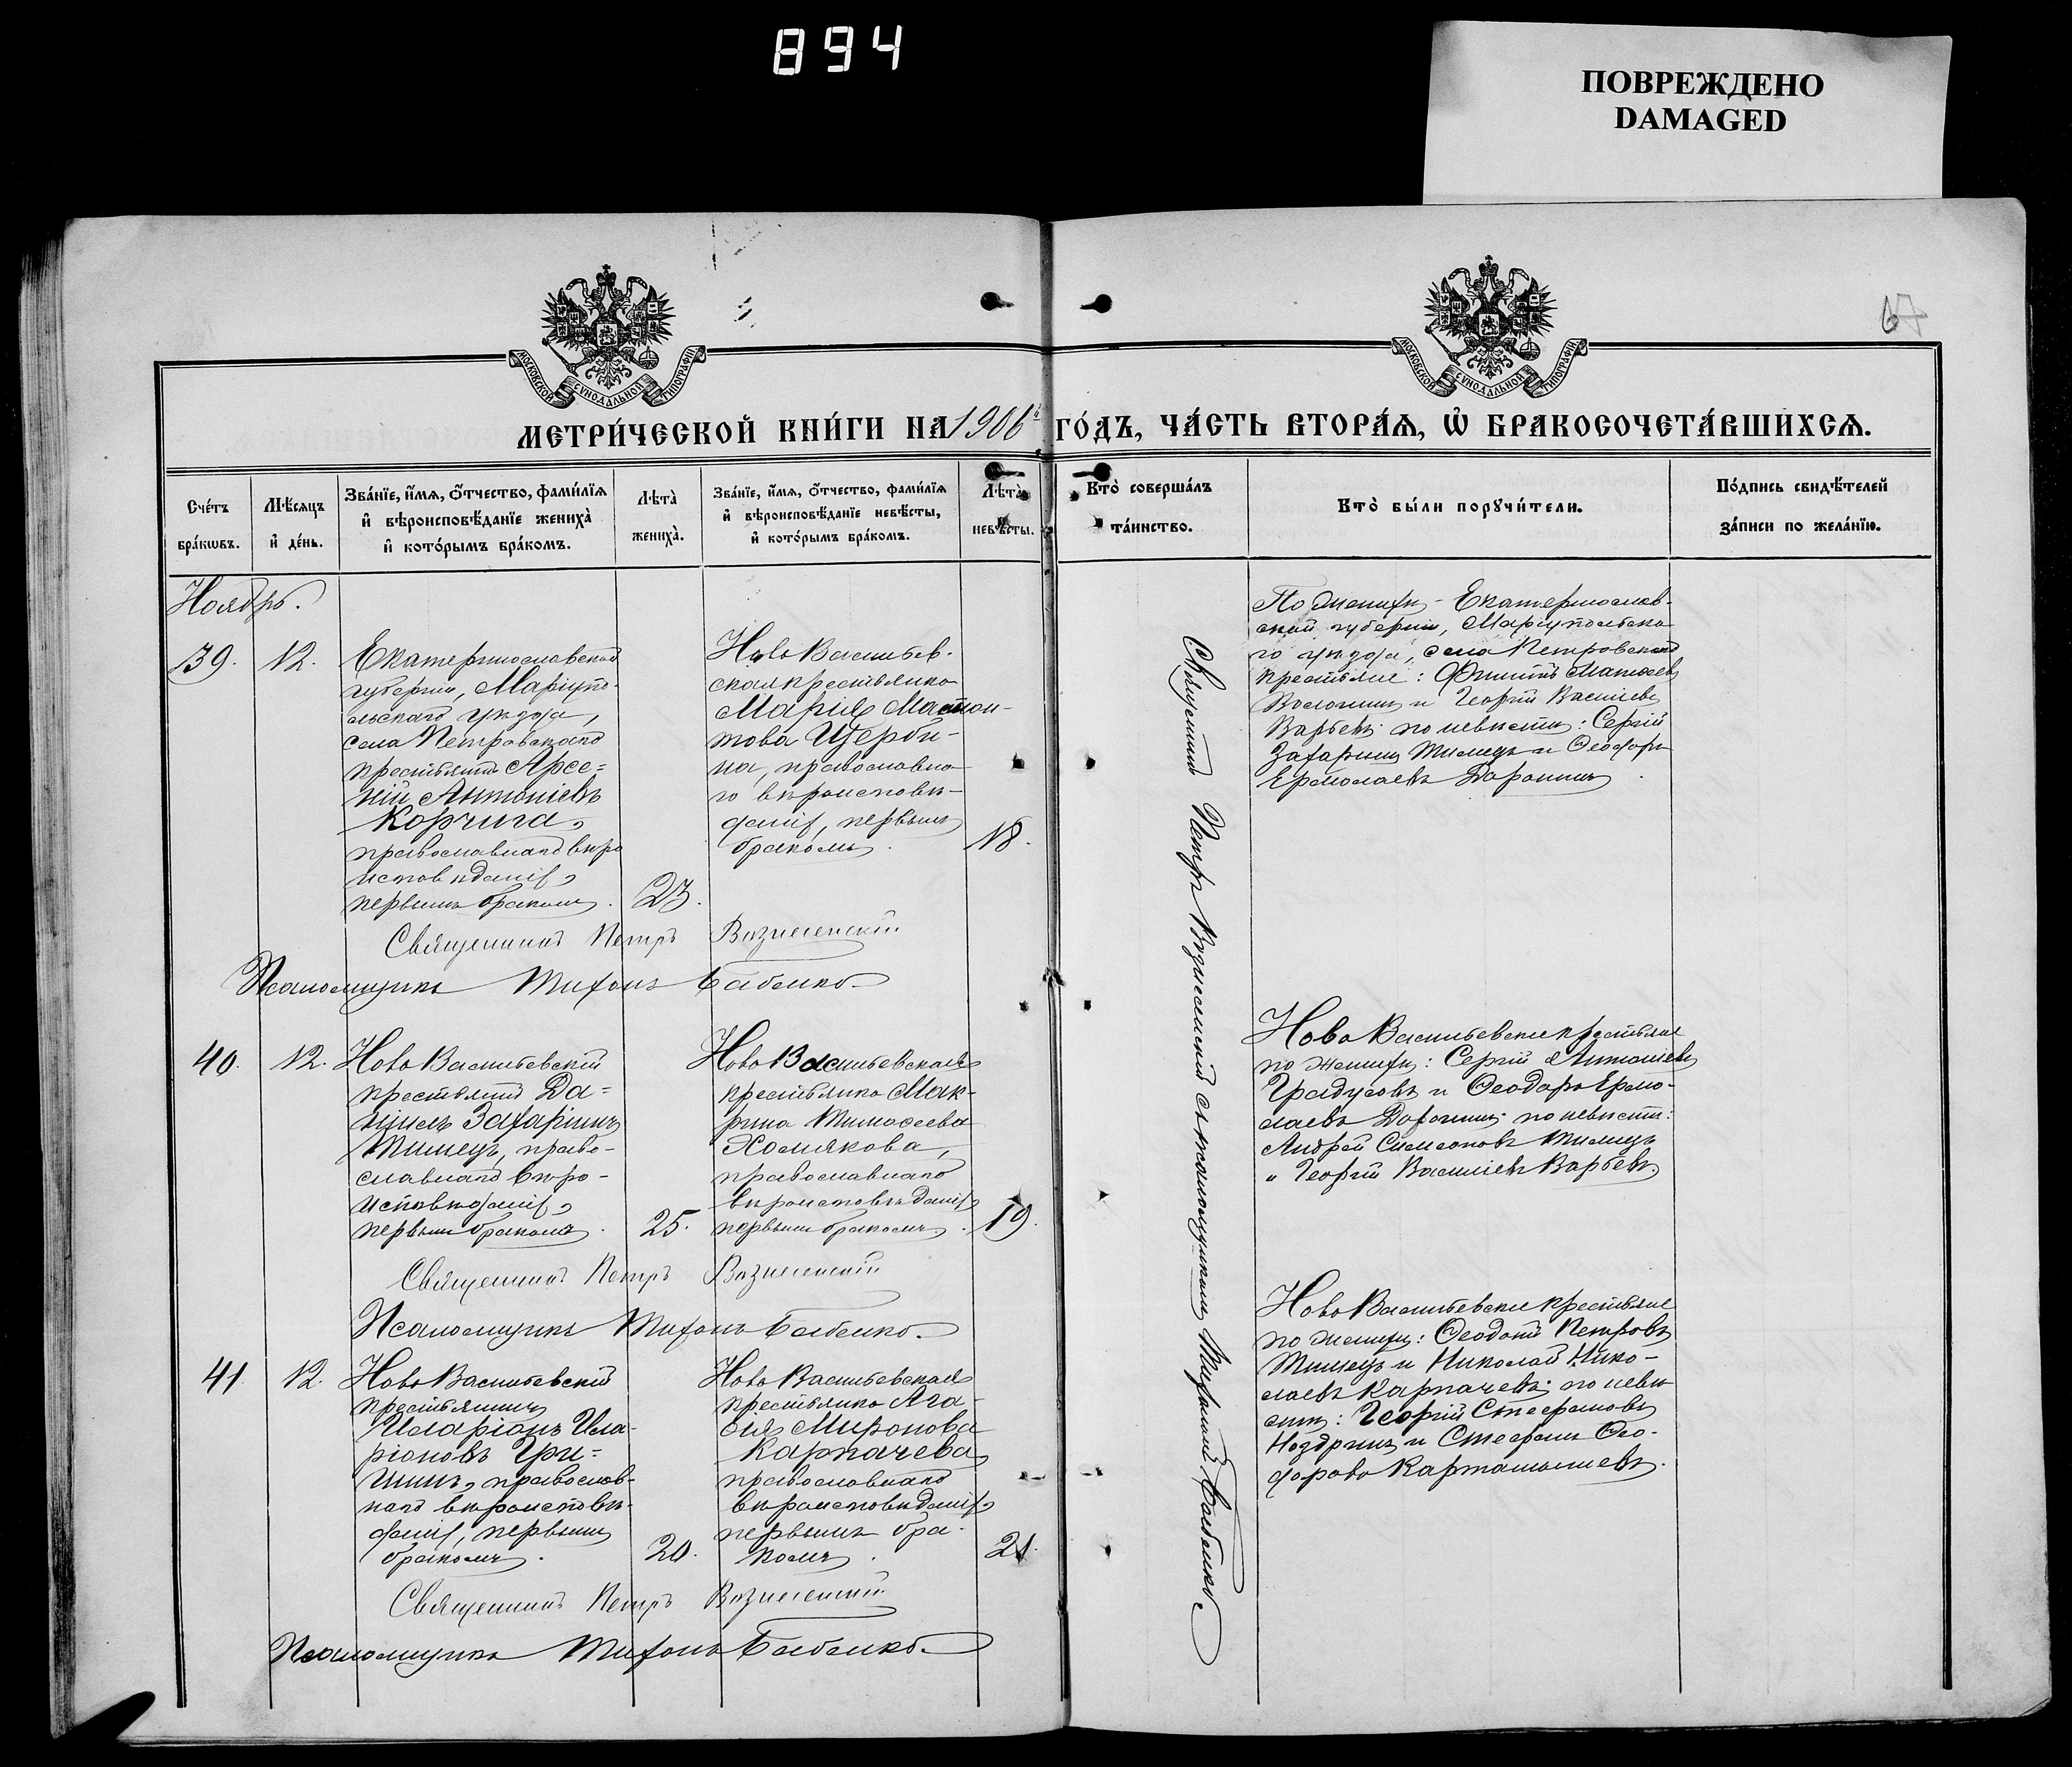 894
ПОВРЕЖДЕНО
DAMAGED
67
МОСКОВСКОЙ СѴНОДАЛЬНОЙ ТИПОГРАФІИ
МОСКОВСКОЙ СѴНОДАЛЬНОЙ ТИПОГРАФІИ
МЕТРИ́ЧЕСКОЙ КНИ́ГИ НА 1906й ГО́ДЪ, ЧА́СТЬ ВТОРА́Ѧ, Ѡ БРАКОСОЧЕТА́ВШИХСѦ.
Сче́тъ
бра́кѡвъ.
Мѣ́сяцъ
и҆ де́нь.
Зва́нїе, и҆́мя, ѻ҆́тчество, фами́лїя
и҆ вѣроисповѣ́данїе жениха̀
и҆ кото́рымъ бра́комъ.
Лѣта̀
жениха̀.
Зва́нїе, и҆́мя, ѻ҆́тчество, фами́лїя
и҆ вѣроисповѣ́данїе невѣ́сты,
и҆ кото́рымъ бра́комъ.
Лѣта̀
невѣ́сты.
Кто̀ соверша́лъ
та́инство.
Кто̀ бы́ли порꙋчи́тели.
По́дпись свидѣ́телей
за́писи по жела́нїю.
Ноябрь.
39.
12.
Екатеринославской
губерніи, Маріупо-
льскаго уѣзда,
села Петровскаго
крестьянинъ Арсе=
ній Антоніевъ
Корчига,
православнаго вѣро
исповѣданія,
первымъ бракомъ.
23.
Ново Васильев-
ская крестьянка
Марія
това Щерби-
на, православна-
го вѣроисповѣ-
данія, первымъ
бракомъ.
18.
Священникъ Петръ Вознесенскій
Псаломщикъ Тихонъ Бабенко
По женихѣ - Екатеринослав-
ской губерніи, Маріупольска-
го уѣзда, села Петровскаго
крестьяне: Филиппъ Матвѣевъ
и Георгій Васильевъ
Варбевъ; по невѣстѣ: Сергій
Захаринъ Тимецъ и Ѳеодоръ
Ермолаевъ Доронинъ.
Священникъ Петръ Вознесенскій съ псаломщикомъ Тихономъ Бабенко
40.
12.
Ново Васильевскій
крестьянинъ Да=
ніилъ Захаріинъ
Тимецъ, право-
славнаго вѣро-
исповѣданія,
первымъ бракомъ.
25.
Ново Васильевская
крестьянка Мак-
рина Тимоѳеева
Хомякова,
православнаго
вѣроисповѣданія
первымъ бракомъ.
19.
Священникъ Петръ Вознесенскій
Псаломщикъ Тихонъ Бабенко.
Ново Васильевскіе крестьяне
по женихѣ: Сергій Антоніевъ
Градусовъ и Ѳеодоръ Ермо-
лаевъ Доронинъ; по невѣстѣ:
Андрей Симеоновъ Тимецъ
и Георгій Васильевъ Варбевъ.
41.
12.
Ново Васильевскій
крестьянинъ
Иларіонъ Ила-
ріоновъ Гри=
шинъ, православ-
наго вѣроисповѣ-
данія, первымъ
бракомъ.
20.
Ново Васильевская
крестьянка Ага-
ѳія Миронова
Карпачева,
православнаго
вѣроисповѣданія,
первымъ бра-
комъ.
21.
Священникъ Петръ Вознесенскій
Псаломщикъ Тихонъ Бабенко
Ново Васильевскіе крестьяне
по женихѣ: Ѳеодотъ Петровъ
Тимецъ и Николай Нико-
лаевъ Карпачевъ; по невѣ-
стѣ: Георгій Стефановъ
Ноздринъ и Стефанъ Ѳео-
доровъ Картамышевъ.